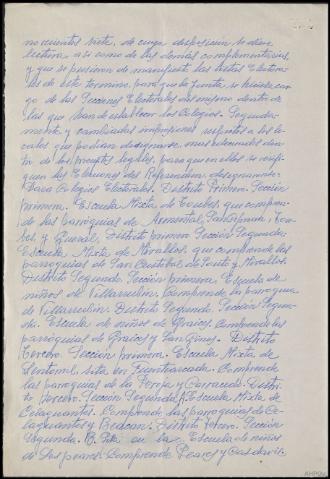 novecientos siete, de cuya disposición se dieron
lectura así como de las demás complementarias,
y que se pusieron de manifiesto las listas Electora-
les de este termino, para que la Junta se hiciese car-
go de las Secciones Electorales del mismo dentro de
las que han de establecer los Colegios. Seguida-
mente y cambiadas impresiones respecto a los lo-
cales que podian designarse mas adecuados den-
tro de los preceptos legales, para que en ellos se verifi-
quen las Elecciones del Referendum designando:
Para Colegios Electorales. Distrito Primero. Sección
primera. Escuela Mixta de que compren-
de las parroquias de Armental,
y Distrito primero Sección Segunda:
Escuela Mixta de que comprende las
parroquias de San Cristobal de y
Distrito Segundo Sección primera. Escuela de
niños de Villarrubin. Comprende la parroquia
de Villarrubin. Distrito Segundo. Sección Segun-
da. Escuela de niños de Graices. Comprende las
parroquias de Graices y San Gines. Distrito
Tercero. Sección primera. Escuela Mixta de
sita en Comprende
las parroquias de la Peroja y Carracedo. Distri-
to Tercero. Sección Segunda A. Escuela Mixta de
Celaguantes. Comprende las parroquias de Ce-
laguantes y Beacan. Distrito Tercero. Sección
Segunda. B. en la Escuela de niños
de Los peares. Comprende Peares y